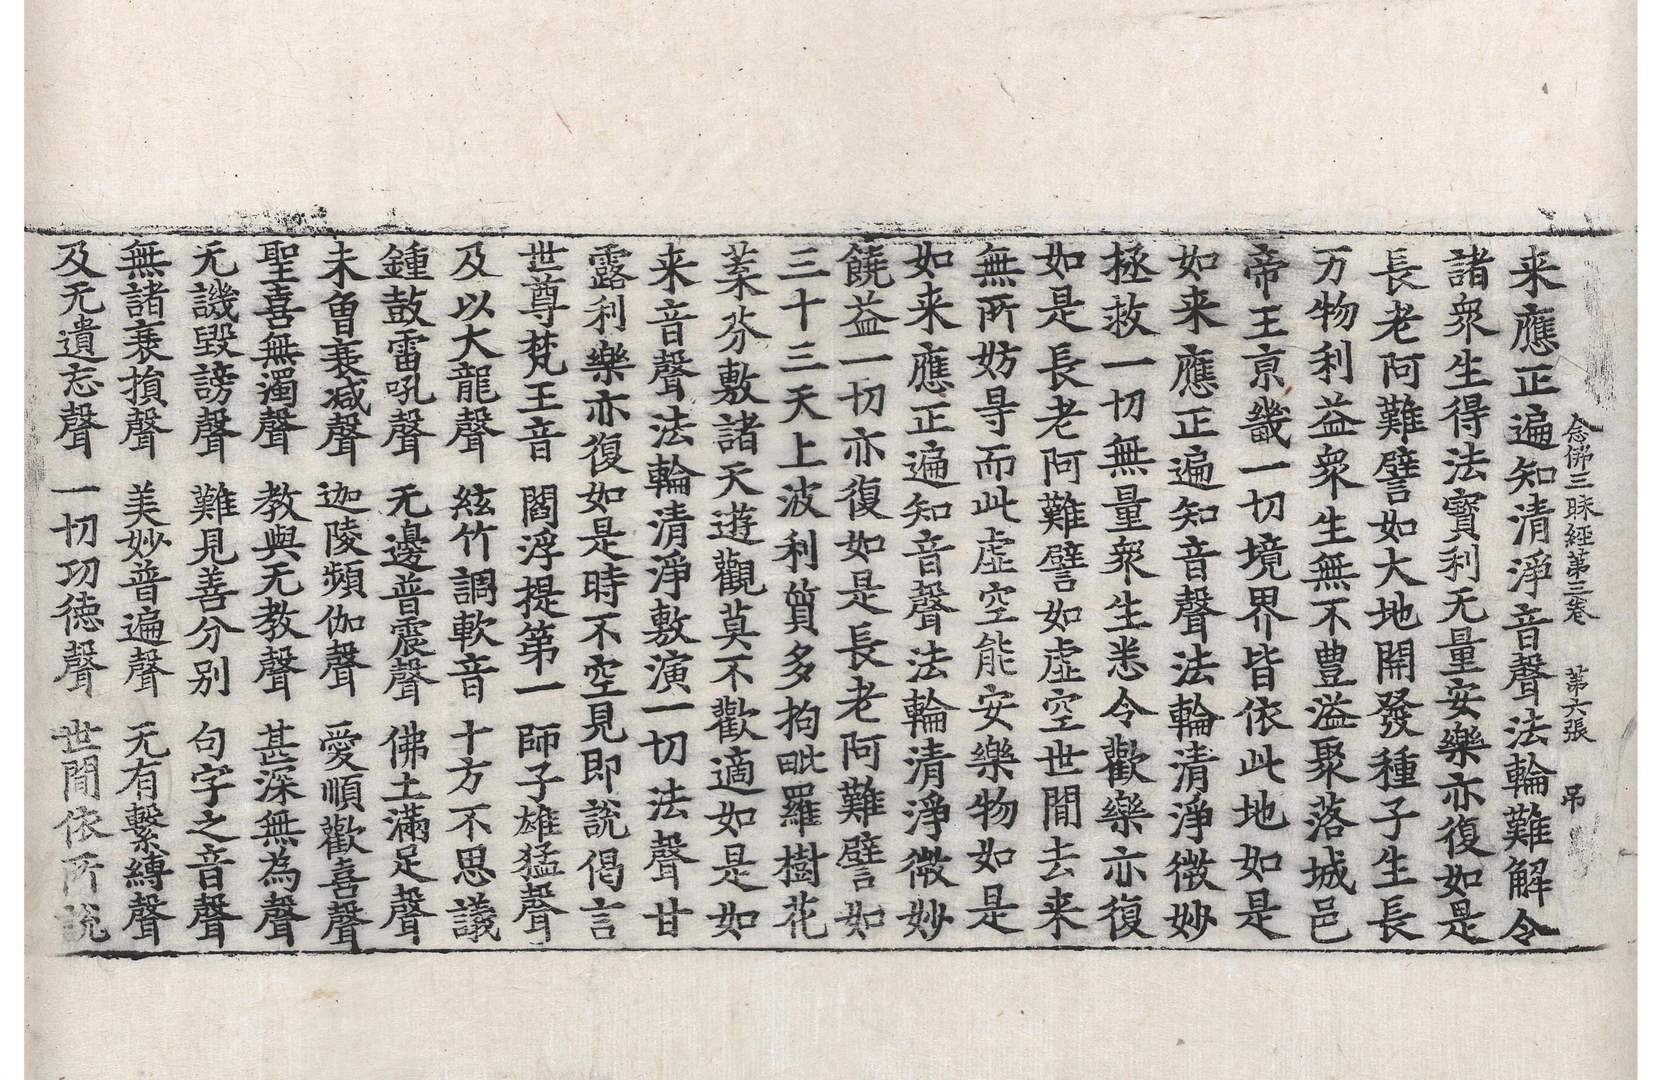 念佛三昧經第三卷　第六張　吊
来應正遍知清淨音聲法輪難解令
諸衆生得法寳利无量安樂亦復如是
長老阿難譬如大地開發種子生長
万物利益衆生無不豊溢聚落城邑
帝王京畿一切境界皆依此地如是
如来應正遍知音聲法輪清淨微妙
拯救一切無量衆生悉令歡樂亦復
如是長老阿難譬如虛空世間去来
無所妨㝵而此虛空能安樂物如是
如来應正遍知音聲法輪清淨微妙
饒益一切亦復如是長老阿難譬如
三十三天上波利質多拘毗羅樹花
葉芬敷諸天遊觀莫不歡適如是如
来音聲法輪清淨敷演一切法聲甘
露利樂亦復如是時不空見即說偈言
世尊梵王音　閻浮提第一　師子雄猛聲
及以大龍聲　絃竹調軟音　十方不思議
鍾鼓雷吼聲　无邊普震聲　佛土滿足聲
未曽衰減聲　迦陵頻伽聲　愛順歡喜聲
聖喜無濁聲　教與无教聲　甚深無為聲
无譏毀謗聲　難見善分別　句字之音聲
無諸衰損聲　美妙普遍聲　无有繫縛聲
及无遺忘聲　一切功德聲　世間依所說